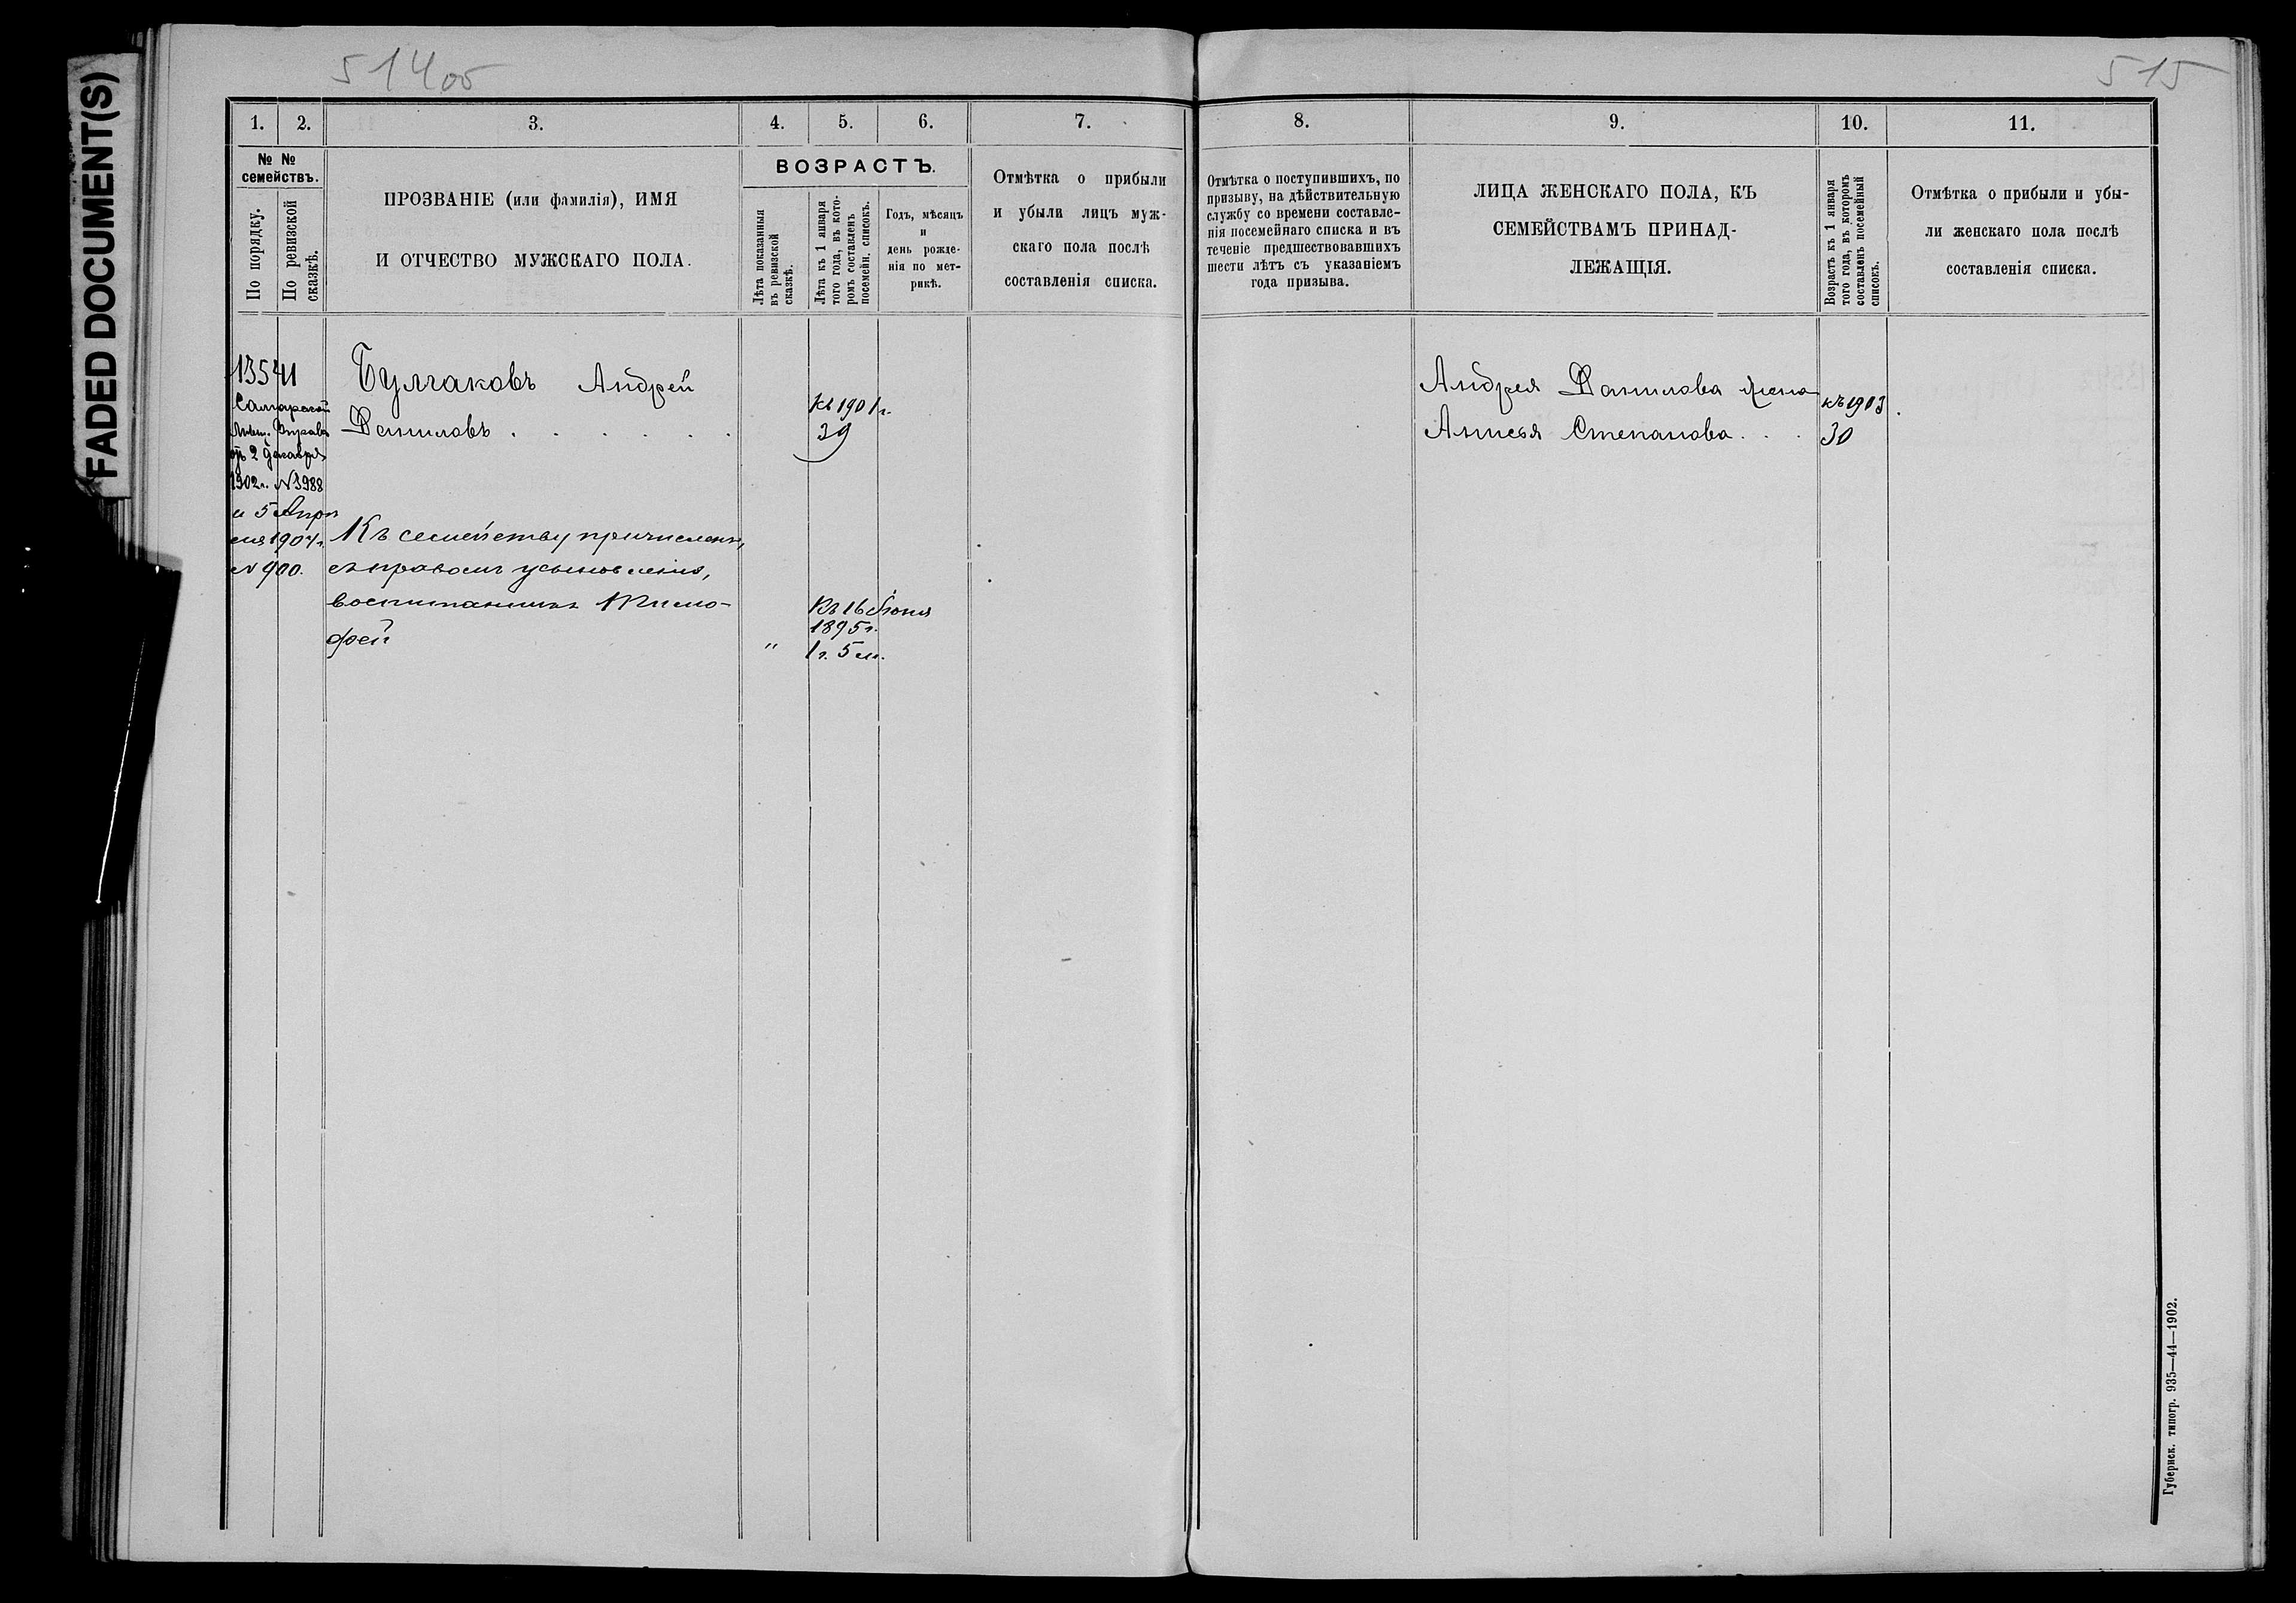 FADED DOCUMENT(S)
514 об
515
1. 2. 3. 4. 5. 6. 7.
№ № семействъ.
По порядку.
По ревизской сказкѣ.
ПРОЗВАНІЕ (или фамилія), ИМЯ
И ОТЧЕСТВО МУЖСКАГО ПОЛА.
ВОЗРАСТЪ.
Лѣта показанныя
въ ревизской
сказкѣ.
Лѣта къ 1 января
того года, въ кото-
ромъ составленъ
посемейн. списокъ.
Годъ, мѣсяцъ
и
день рожде-
нія по мет-
рикѣ.
Отмѣтка о прибыли
и убыли лицъ муж-
скаго пола послѣ
составленія списка.
1354
Самарской
Мѣщ. Управы
отъ 2 декабря
1902 г. №3988
и 5 Апрѣ
ля 1904 г.
№ 900.
Булгаковъ Андрей
Даниловъ . . . . . .
Къ 1901 г.
39
Къ семейству причисленъ,
съ правомъ усыновленія,
воспитанникъ Тимо-
фей
"
Къ 16 Іюня
1895 г.
1 г. 5 м.
8. 9. 10. 11.
Отмѣтка о поступившихъ, по
призыву, на дѣйствительную
службу со времени составле-
нія посемейнаго списка и въ
теченіе предшествовавшихъ
шести лѣтъ съ указаніемъ
года призыва.
ЛИЦА ЖЕНСКАГО ПОЛА, КЪ
СЕМЕЙСТВАМЪ ПРИНАД-
ЛЕЖАЩІЯ.
Возрастъ къ 1 января
того года, въ которомъ
составленъ посемейный
списокъ.
Отмѣтка о прибыли и убы-
ли женскаго пола послѣ
составленія списка.
Андрея Данилова жена
Анисья Степанова . . .
къ 1903
30
Губернск. типогр. 935—44—1902.